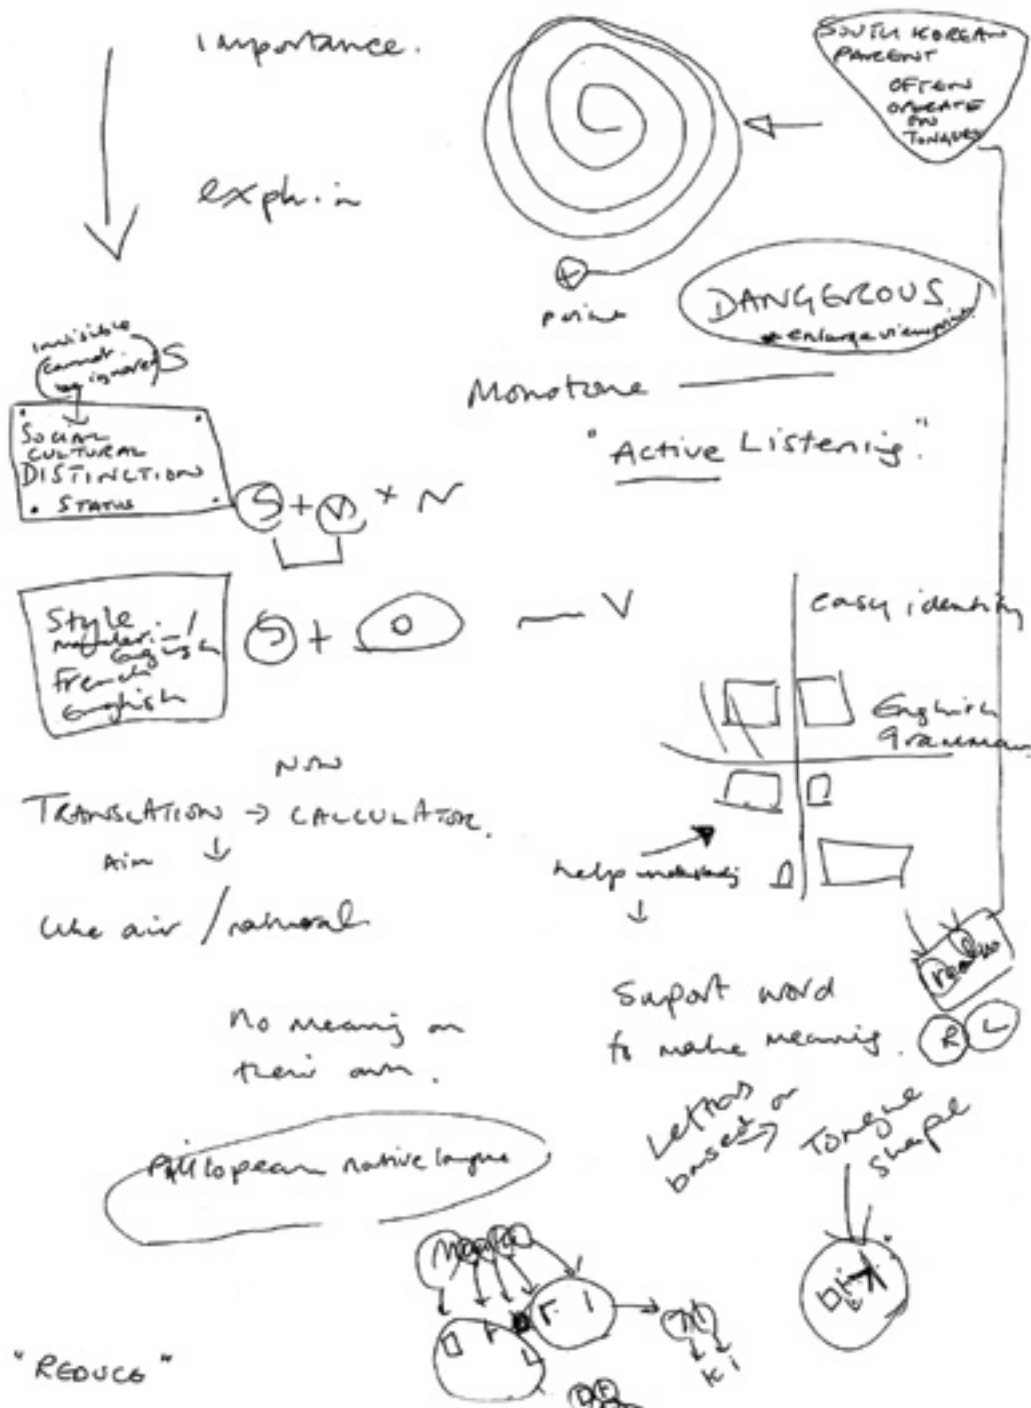 Importance.
explain
SOUTH KOREAN
PARENT
OFTEN
OPERATE
ON
TONGUES
point
DANGEROUS
enlarge viewpoint
Monotone
"Active Listening."
invisible
cannot
be ignored
S
SOCIAL
CULTURAL
DISTINCTION
STATUS
S + N
Style
English
French
English
S + O — V
easy identity
English
Grammar
NOW
TRANSLATION → CALCULATOR.
Aim
like air / natural
help understanding
Support word
to make meaning.
R L
No meaning on
their own.
Letters
based on
Tongue
shape
native
ki
"REDUCE"